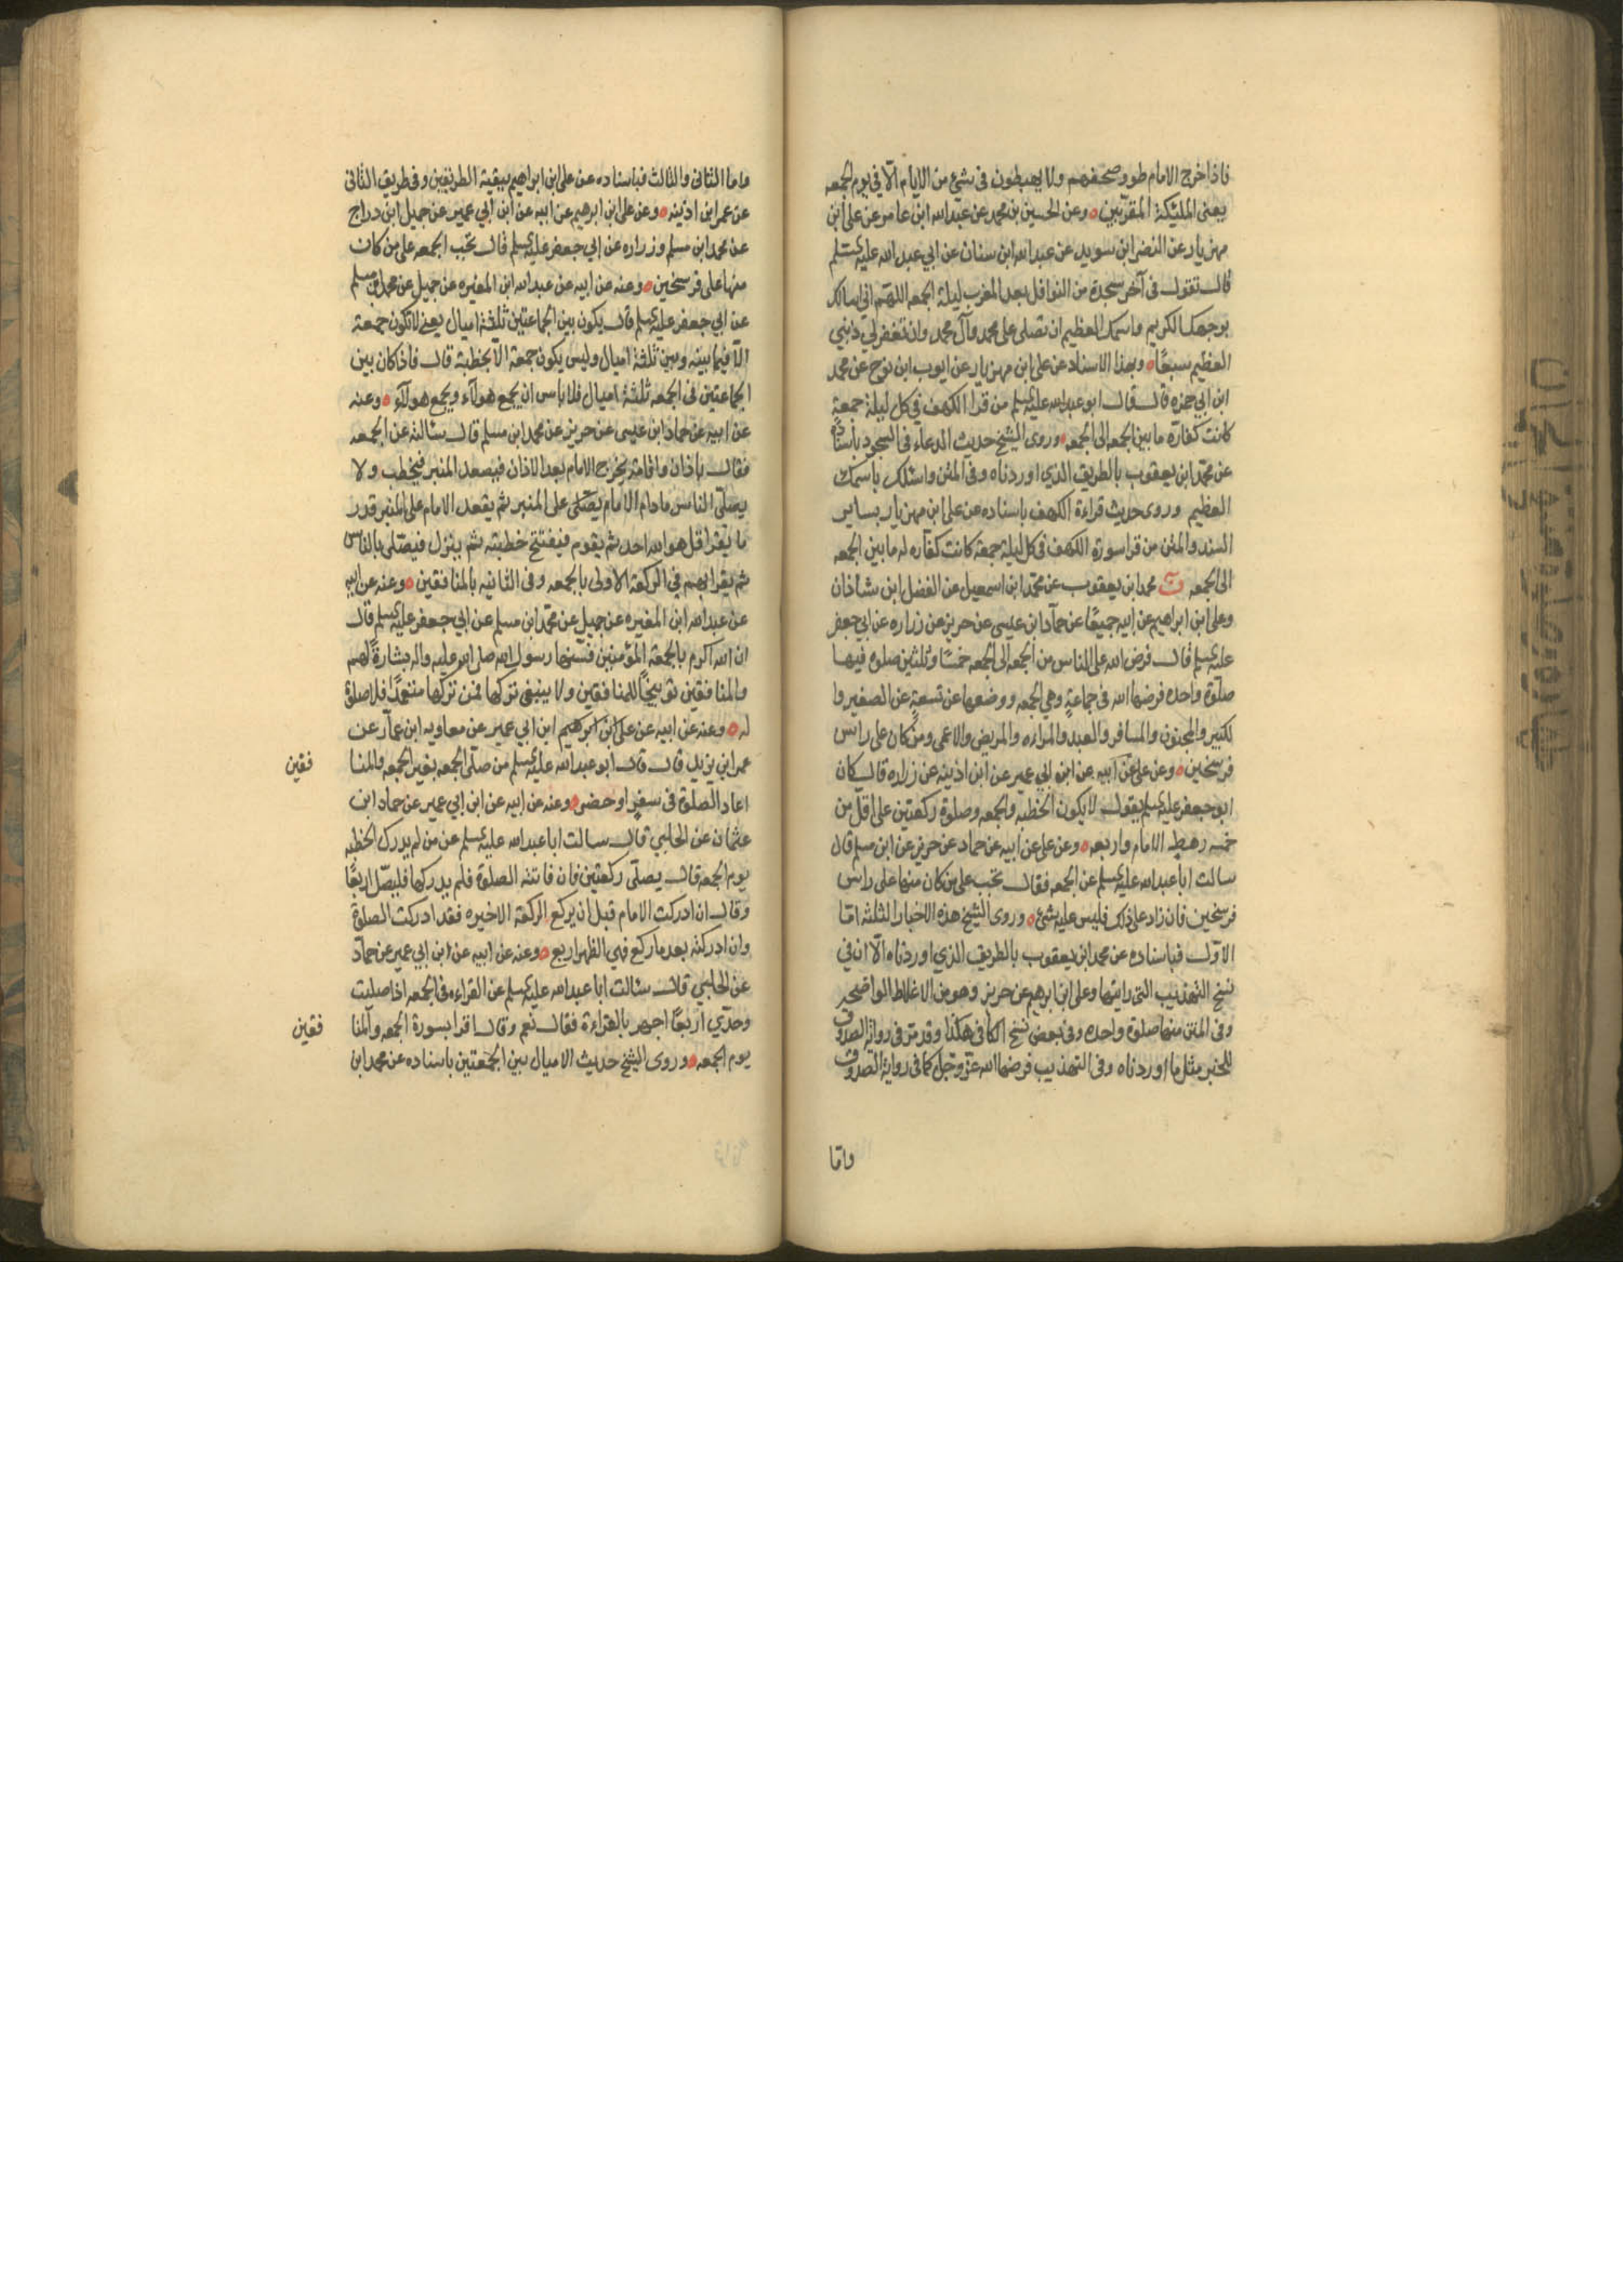 فاذا خرج الامام طووا صحفهم ولا يهبطون في شيء من الايام الّا في يوم الجمعه
يعنى الملئكة المقرّبين ه وعن الحسين بن محمد عن عبدالله ابن عامر عن على ابن
مهزيار عن النضر ابن سويد عن عبدالله ابن سنان عن ابي عبدالله عليه السلم
قال تقول في آخر سجدة من النوافل بعد المغرب ليلة الجمعه اللهم اني اسالك
بوجهك الكريم واسمك العظيم ان تصلى على محمد وآل محمد وان تغفر لي ذنبي
العظيم سبعًا ه وبهذا الاسناد عن على ابن مهزيار عن ايوب ابن نوح عن محمد
ابن ابي حمزه قال قال ابو عبدالله عليه السلم من قرا الكهف في كل ليلة جمعةٍ
كانت كفارة ما بين الجمعه الى الجمعه ه وروى الشيخ حديث الدعاء في السجود باسناده
عن محمد ابن يعقوب بالطريق الذي اوردناه وفى المتن واسئلك باسمك
العظيم وروى حديث قراءة الكهف باسناده عن على ابن مهزيار بساير
السند والمتن من قرا سورة الكهف في كل ليلة جمعة كانت كفاره له ما بين الجمعه
الى الجمعه ن محمد ابن يعقوب عن محمد ابن اسمعيل عن الفضل ابن شاذان
وعلى ابن ابراهيم عن ابيه جميعًا عن حمّاد ابن عيسى عن حريز عن زراره عن ابي جعفر
عليه السلم قال فرض الله على الناس من الجمعه الى الجمعه خمسًا وثلثين صلوه فيها
صلوة واحده فرضها الله في جماعةٍ وهي الجمعه ووضعها عن تسعةٍ عن الصغير وا
لكبير والمجنون والمسافر والعبد والمراه والمريض والاعمى ومن كان على راس
فرسخين ه وعن على عن ابيه عن ابن ابي عمير عن ابن اذينه عن زراره قال كان
ابو جعفر عليه السلم يقول لا يكون الخطبه والجمعه وصلوة ركعتين على اقل من
خمسه رهط الامام واربعه ه وعن على عن ابيه عن حماد عن حريز عن ابن مسلم قال
سالت ابا عبدالله عليه السلم عن الجمعه فقال تجب على من كان منها على راس
فرسخين فان زاد على ذلك فليس عليه شئ ه وروى الشيخ هذه الاخبار الثلثه امّا
الاوّل فباسناده عن محمد ابن يعقوب بالطريق الذي اوردناه الّا ان في
نسخ التهذيب التى رايتها وعلى ابن ابرهيم عن حريز وهو من الاغلاط الواضحه
وفى المتن منها صلوة واحده وفى بعض نسخ الكافى هكذا وقد مرّ فى رواية الصدوق
للخبر مثل ما اوردناه وفى التهذيب فرضها الله عز وجل كما في رواية الصدوق
وامّا
واما الثانى والثالث فباسناده عن على ابن ابراهيم ببقية الطريقين وفى طريق الثانى
عن عمر ابن اذينه ه وعن على ابن ابرهيم عن ابيه عن ابن ابي عمير عن جميل ابن دراج
عن محمد ابن مسلم وزراره عن ابي جعفر عليه السلم قال تجب الجمعه على من كان
منها على فرسخين ه وعنه عن ابيه عن عبدالله ابن المغيره عن جميل عن محمد ابن مسلم
عن ابي جعفر عليه السلم قال يكون بين الجماعتين ثلثة اميال يعنى لا تكون جمعة
الّا فيما بينه وبين ثلثة اميال وليس يكون جمعة الّا بخطبة قال فاذا كان بين
الجماعتين فى الجمعه ثلثة اميال فلا باس ان يجمع هولآء ويجمع هولآء ه وعنه
عن ابيه عن حماد ابن عيسى عن حريز عن محمد ابن مسلم قال سئالته عن الجمعه
فقال باذان واقامة يخرج الامام بعد الاذان فيصعد المنبر فيخطب ولا
يصلّى الناس ما دام الامام يصلّى على المنبر ثم يقعد الامام على المنبر قدر
ما يقرا قل هو الله احد ثم يقوم فيفتتح خطبته ثم ينزل فيصلّى بالناس
ثم يقرا بهم في الركعة الاولى بالجمعه وفى الثانيه بالمنافقين ه وعنه عن ابيه
عن عبدالله ابن المغيره عن جميل عن محمد ابن مسلم عن ابي جعفر عليه السلم قال
ان الله اكرم بالجمعة المؤمنين فسنّها رسول الله صلى الله عليه واله بشارةً لهم
والمنافقين توبيخًا للمنافقين ولا ينبغى تركها فمن تركها متعمدًا فلا صلوة
له ه وعنه عن ابيه عن على ابن ابرهيم ابن ابي عمير عن معاويه ابن عمّار عن
عمر ابن يزيد قال قال ابو عبدالله عليه السلم من صلّى الجمعه بغير الجمعه والمنا
فقين
اعاد الصلوة فى سفرٍ او حضر ه وعنه عن ابيه عن ابن ابي عمير عن حماد ابن
عثمان عن الحلبي قال سالت ابا عبدالله عليه السلم عن من لم يدرك الخطبه
يوم الجمعه قال يصلّى ركعتين فان فاتته الصلوة فلم يدركها فليصلّ اربعًا
وقال ان ادركت الامام قبل ان يركع الركعة الاخيره فقد ادركت الصلوة
وان ادركته بعد ما ركع فهي الظهر اربع ه وعنه عن ابيه عن ابن ابي عمير عن حمّاد
عن الحلبي قال سئالت ابا عبدالله عليه السلم عن القراءه فى الجمعه اذا صليت
وحدي اربعًا اجهر بالقراءة فقال نعم وقال اقرا بسورة الجمعه والمنا
فقين
يوم الجمعه ه وروى الشيخ حديث الاميال بين الجمعتين باسناده عن محمد ابن